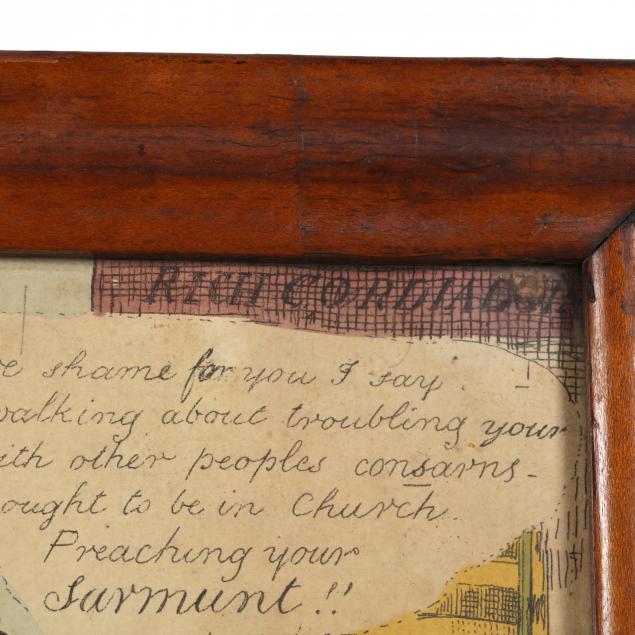 RICH CORDIAL
e shame for you I say.
walking about troubling your
ith other peoples consarns -
ought to be in Church
Preaching your
Sarmunt !!